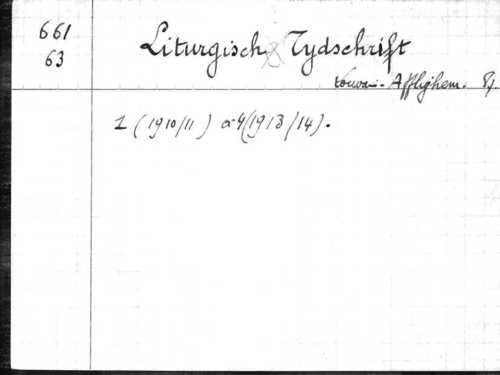 661
63
Liturgisch Tydschrift
Louvain - Afflighem.
1 (1910/11) à 4 (1913/14).